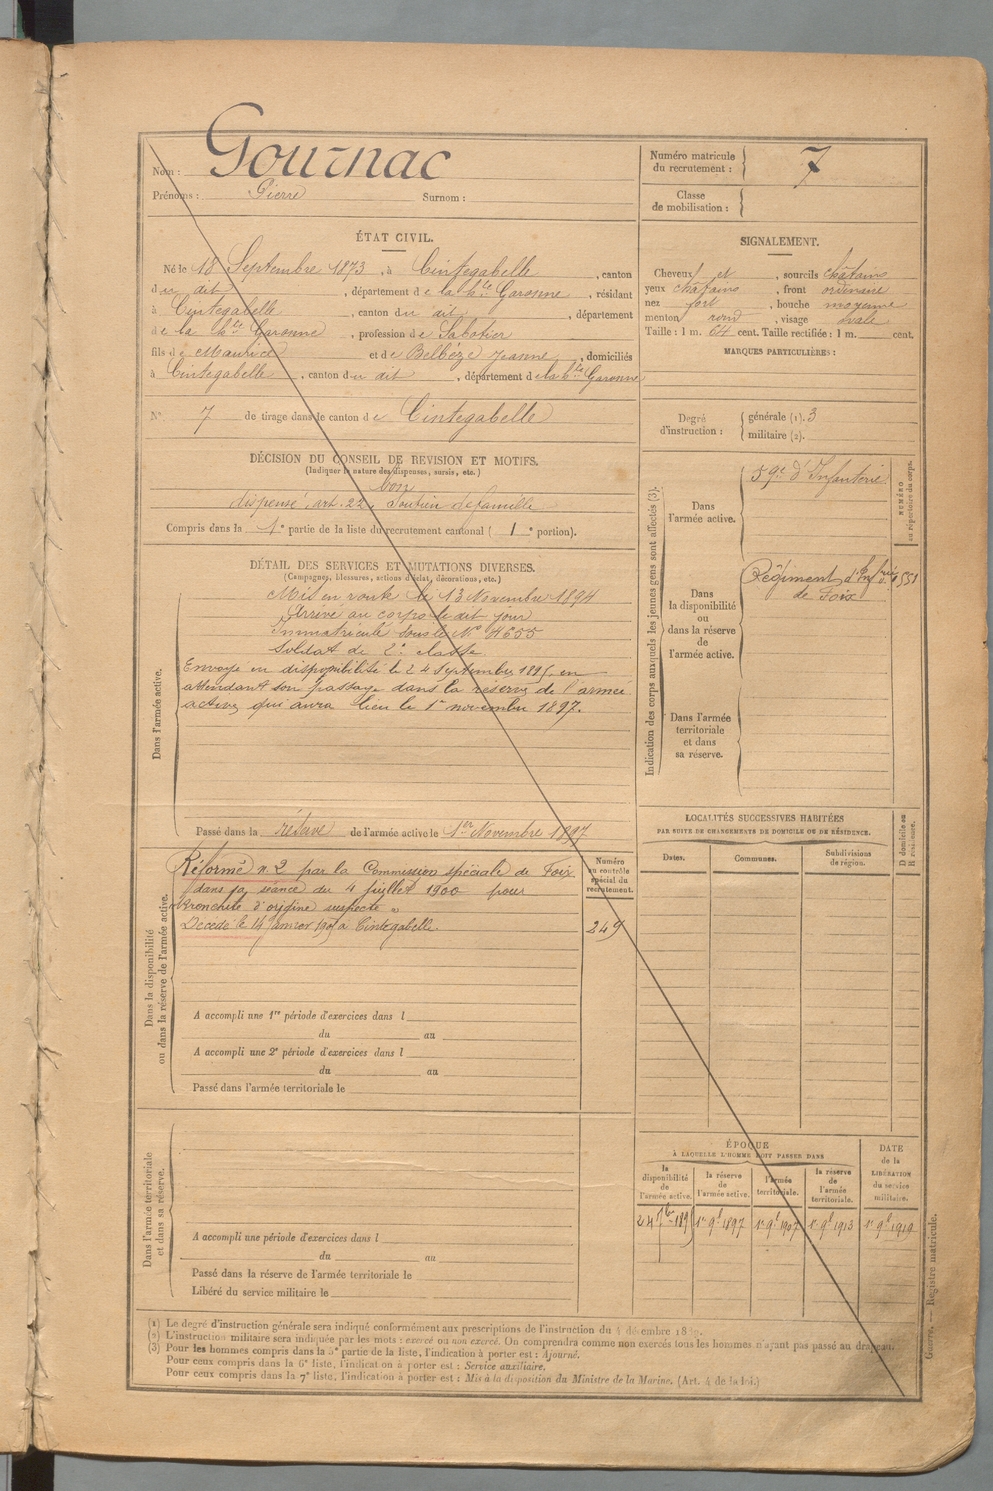 Nom : Gournac
Prénoms : Pierre Surnom :
Numéro matricule du recrutement : 7
Classe de mobilisation :
ÉTAT CIVIL.
Né le 18 Septembre 1873, à Cintegabelle, canton
du dit, département de la hte Garonne, résidant
à Cintegabelle, canton du dit, département
de la hte Garonne, profession de Sabotier
fils de Maurice et de Belbèze Jeanne, domiciliés
à Cintegabelle, canton du dit, département de la hte Garonne
SIGNALEMENT.
Cheveux et, sourcils châtains
yeux châtains, front ordinaire
nez fort, bouche moyenne
menton rond, visage ovale
Taille : 1 m. 64 cent. Taille rectifiée : 1 m. cent.
MARQUES PARTICULIÈRES :
N° 7 de tirage dans le canton de Cintegabelle
Degré d'instruction : générale (1). 3
militaire (2).
DÉCISION DU CONSEIL DE REVISION ET MOTIFS.
(Indiquer la nature des dispenses, sursis, etc.)
bon
dispensé art. 22, Soutien de famille
Compris dans la 1e partie de la liste du recrutement cantonal (1e portion).
DÉTAIL DES SERVICES ET MUTATIONS DIVERSES.
(Campagnes, blessures, actions d'éclat, décorations, etc.)
Dans l'armée active.
Mis en route le 13 Novembre 1894
Arrivé au corps le dit jour
Immatriculé sous le N° 4655
Soldat de 2e classe
Envoyé en disponibilité le 24 Septembre 1895, en
attendant son passage dans la réserve de l'armée
active, qui aura lieu le 1er novembre 1897.
Passé dans la réserve de l'armée active le 1er Novembre 1897
Indication des corps auxquels les jeunes gens sont affectés (3).
Dans l'armée active.
59e d'Infanterie
NUMÉRO au répertoire du corps.
Dans la disponibilité ou dans la réserve de l'armée active.
Régiment d'Infrie
de Foix
Dans l'armée territoriale et dans sa réserve.
Dans la disponibilité ou dans la réserve de l'armée active.
Réformé n° 2 par la Commission spéciale de Foix
dans sa séance du 4 juillet 1900 pour
Bronchite d'origine suspecte »
Décédé le 14 janvier à Cintegabelle.
Numéro au contrôle spécial du recrutement.
249
A accompli une 1re période d'exercices dans l
du au
A accompli une 2e période d'exercices dans l
du au
Passé dans l'armée territoriale le
LOCALITÉS SUCCESSIVES HABITÉES
PAR SUITE DE CHANGEMENTS DE DOMICILE OU DE RÉSIDENCE.
Dates. Communes. Subdivisions de région.
D domicile ou R résidence.
Dans l'armée territoriale et dans sa réserve.
A accompli une période d'exercices dans l
du au
Passé dans la réserve de l'armée territoriale le
Libéré du service militaire le
ÉPOQUE
À LAQUELLE L'HOMME DOIT PASSER DANS
la disponibilité de l'armée active. la réserve de l'armée active. l'armée territoriale. la réserve de l'armée territoriale. DATE de la LIBÉRATION du service militaire.
24 7bre 1895 1er 9b 1897 1er 9b 1907 1er 9b 1913 1er 9b 1919
(1) Le degré d'instruction générale sera indiqué conformément aux prescriptions de l'instruction du 4 décembre
(2) L'instruction militaire sera indiquée par les mots : exercé ou non exercé. On comprendra comme non exercés tous les hommes n'ayant pas passé au drapeau.
(3) Pour les hommes compris dans la 5e partie de la liste, l'indication à porter est : Ajourné.
Pour ceux compris dans la 6e liste, l'indication à porter est : Service auxiliaire.
Pour ceux compris dans la 7e liste, l'indication à porter est : Mis à la disposition du Ministre de la Marine. (Art. 4 de la loi.)
Guerre. — Registre matricule.